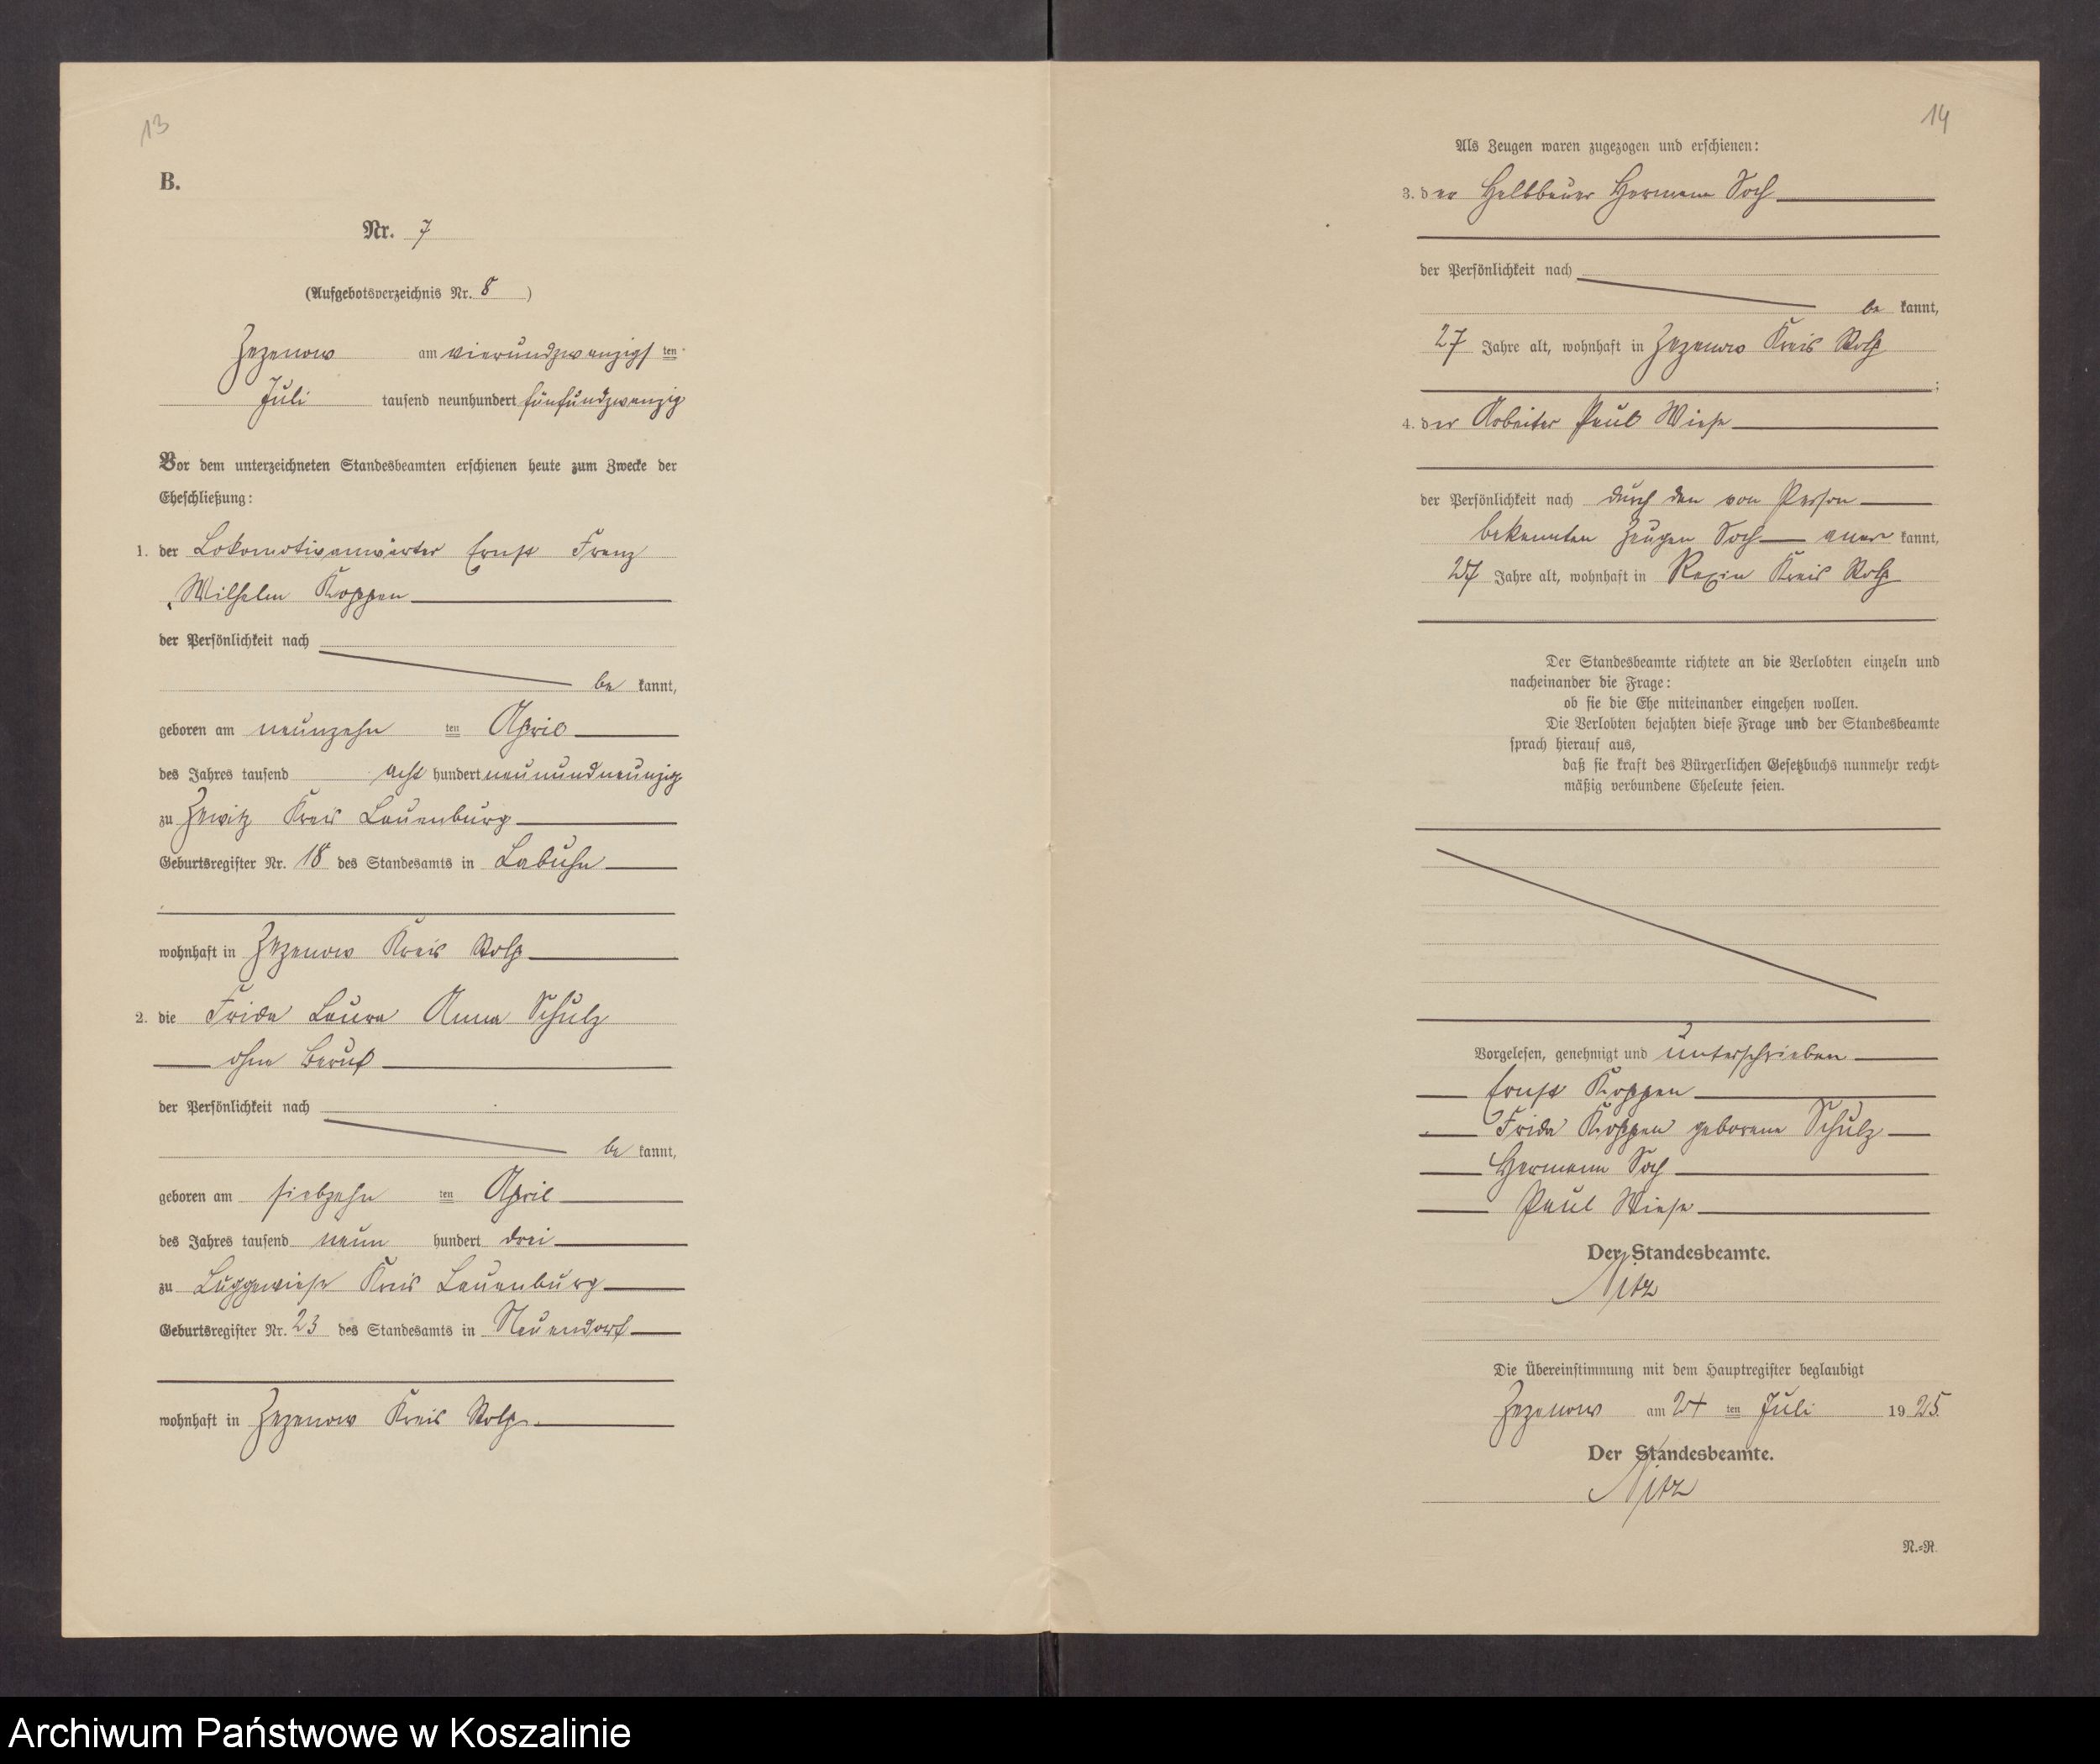 13
B.
Nr. 7
(Aufgebotsverzeichnis Nr. 8 )
Zezenow am vierundzwanzigsten
Juli tausend neunhundert fünfundzwanzig
Vor dem unterzeichneten Standesbeamten erschienen heute zum Zwecke der
Eheschließung:
1. der Lokomotivanwärter Ernst Franz
Wilhelm Koppen
der Persönlichkeit nach
be kannt,
geboren am neunzehn ten April
des Jahres tausend acht hundert neunundneunzig
zu Zewitz Kreis Lauenburg
Geburtsregister Nr. 18 des Standesamts in Labuhn
wohnhaft in Zezenow Kreis Stolp
2. die Frida Laura Anna Schulz
ohne Beruf
der Persönlichkeit nach
be kannt,
geboren am siebzehn ten April
des Jahres tausend neun hundert drei
zu Luggewiese Kreis Lauenburg
Geburtsregister Nr. 23 des Standesamts in Neuendorf
wohnhaft in Zezenow Kreis Stolp
14
Als Zeugen waren zugezogen und erschienen:
3. der Halbbauer Hermann Koch
der Persönlichkeit nach
be kannt,
27 Jahre alt, wohnhaft in Zezenow Kreis Stolp
;
4. der Arbeiter Paul Wiese
der Persönlichkeit nach durch den von Person
bekannten Zeugen Koch aner kannt,
27 Jahre alt, wohnhaft in Rexin Kreis Stolp
Der Standesbeamte richtete an die Verlobten einzeln und
nacheinander die Frage:
ob sie die Ehe miteinander eingehen wollen.
Die Verlobten bejahten diese Frage und der Standesbeamte
sprach hierauf aus,
daß sie kraft des Bürgerlichen Gesetzbuchs nunmehr recht-
mäßig verbundene Eheleute seien.
Vorgelesen, genehmigt und unterschrieben
Ernst Koppen
Frida Koppen geborene Schulz
Hermann Koch
Paul Wiese
Der Standesbeamte.
Nitz
Die Übereinstimmung mit dem Hauptregister beglaubigt
Zezenow am 24 ten Juli 19 25
Der Standesbeamte.
Nitz
N.-R.
Archiwum Państwowe w Koszalinie